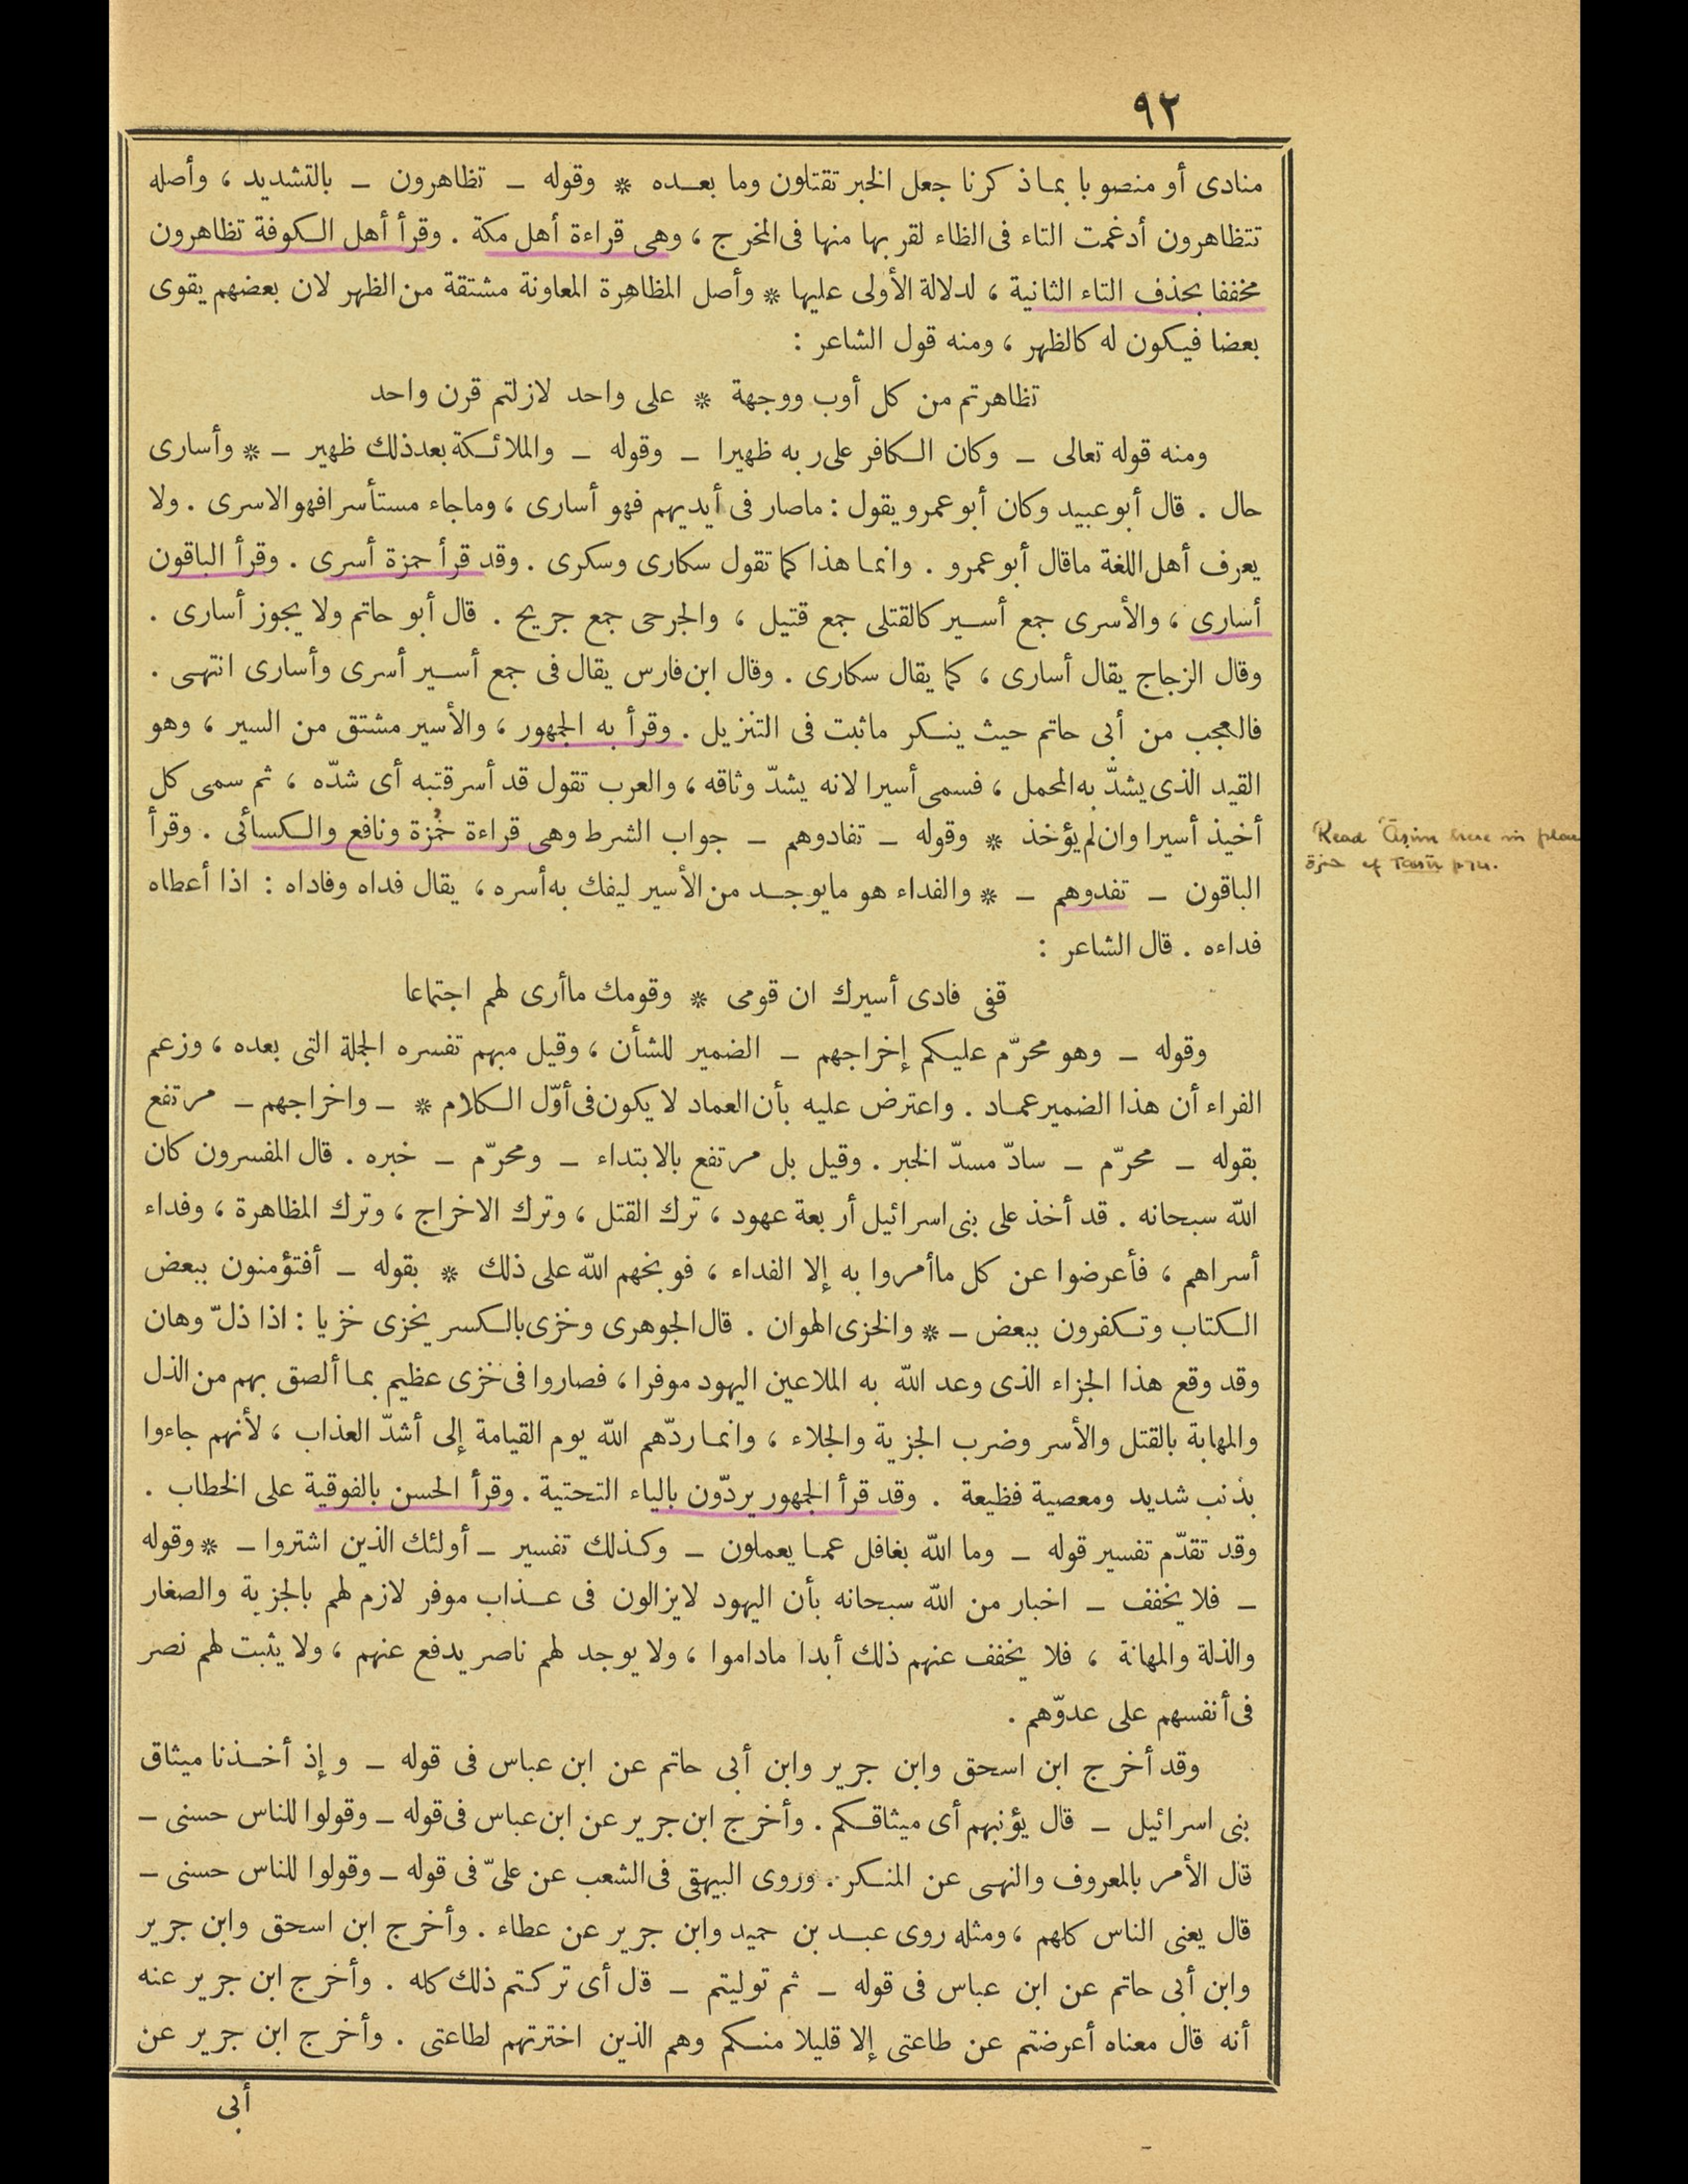 ٩٢
منادى أو منصوبا بما ذكرنا جعل الخبر تقتلون وما بعده * وقوله ــ تظاهرون ــ بالتشديد ، وأصله
تتظاهرون أدغمت التاء فى الظاء لقربها منها فى المخرج ، وهى قراءة أهل مكة . وقرأ أهل الكوفة تظاهرون
مخففا بحذف التاء الثانية ، لدلالة الأولى عليها * وأصل المظاهرة المعاونة مشتقة من الظهر لان بعضهم يقوى
بعضا فيكون له كالظهر ، ومنه قول الشاعر :
تظاهرتم من كل أوب ووجهة * على واحد لازلتم قرن واحد
ومنه قوله تعالى ــ وكان الكافر على ربه ظهيرا ــ وقوله ــ والملائكة بعد ذلك ظهير ــ * وأسارى
حال . قال أبو عبيد وكان أبو عمرو يقول : ماصار فى أيديهم فهو أسارى ، وماجاء مستأسرا فهو الاسرى . ولا
يعرف أهل اللغة ماقال أبو عمرو . وانما هذا كما تقول سكارى وسكرى . وقد قرأ حمزة أسرى . وقرأ الباقون
أسارى ، والأسرى جمع أسير كالقتلى جمع قتيل ، والجرحى جمع جريح . قال أبو حاتم ولا يجوز أسارى .
وقال الزجاج يقال أسارى ، كما يقال سكارى . وقال ابن فارس يقال فى جمع أسير أسرى وأسارى انتهى .
فالعجب من أبى حاتم حيث ينكر ماثبت فى التنزيل . وقرأ به الجمهور ، والأسير مشتق من السير ، وهو
القيد الذى يشدّ به المحمل ، فسمى أسيرا لانه يشدّ وثاقه ، والعرب تقول قد أسر قتبه أى شدّه ، ثم سمى كل
أخيذ أسيرا وان لم يؤخذ * وقوله ــ تفادوهم ــ جواب الشرط وهى قراءة حمزة ونافع والكسائى . وقرأ
الباقون ــ تفدوهم ــ * والفداء هو مايوجد من الأسير ليفك به أسره ، يقال فداه وفاداه : اذا أعطاه
فداءه . قال الشاعر :
قفى فادى أسيرك ان قومى * وقومك ماأرى لهم اجتماعا
وقوله ــ وهو محرّم عليكم إخراجهم ــ الضمير للشأن ، وقيل مبهم تفسره الجملة التى بعده ، وزعم
الفراء أن هذا الضمير عماد . واعترض عليه بأن العماد لا يكون فى أوّل الكلام * ــ واخراجهم ــ مرتفع
بقوله ــ محرّم ــ سادّ مسدّ الخبر . وقيل بل مرتفع بالابتداء ــ ومحرّم ــ خبره . قال المفسرون كان
الله سبحانه . قد أخذ على بنى اسرائيل أربعة عهود ، ترك القتل ، وترك الاخراج ، وترك المظاهرة ، وفداء
أسراهم ، فأعرضوا عن كل ماأمروا به إلا الفداء ، فوبخهم الله على ذلك * بقوله ــ أفتؤمنون ببعض
الكتاب وتكفرون ببعض ــ * والخزى الهوان . قال الجوهرى وخزى بالكسر يخزى خزيا : اذا ذلّ وهان
وقد وقع هذا الجزاء الذى وعد الله به الملاعين اليهود موفرا ، فصاروا فى خزى عظيم بما ألصق بهم من الذل
والمهابة بالقتل والأسر وضرب الجزية والجلاء ، وانما ردّهم الله يوم القيامة إلى أشدّ العذاب ، لأنهم جاءوا
بذنب شديد ومعصية فظيعة . وقد قرأ الجمهور يردّون بالياء التحتية . وقرأ الحسن بالفوقية على الخطاب .
وقد تقدّم تفسير قوله ــ وما الله بغافل عما يعملون ــ وكذلك تفسير ــ أولئك الذين اشتروا ــ * وقوله
ــ فلا يخفف ــ اخبار من الله سبحانه بأن اليهود لايزالون فى عذاب موفر لازم لهم بالجزية والصغار
والذلة والمهانة ، فلا يخفف عنهم ذلك أبدا ماداموا ، ولا يوجد لهم ناصر يدفع عنهم ، ولا يثبت لهم نصر
فى أنفسهم على عدوّهم .
وقد أخرج ابن اسحق وابن جرير وابن أبى حاتم عن ابن عباس فى قوله ــ وإذ أخذنا ميثاق
بنى اسرائيل ــ قال يؤنبهم أى ميثاقكم . وأخرج ابن جرير عن ابن عباس فى قوله ــ وقولوا للناس حسنى ــ
قال الأمر بالمعروف والنهى عن المنكر . وروى البيهقى فى الشعب عن علىّ فى قوله ــ وقولوا للناس حسنى ــ
قال يعنى الناس كلهم ، ومثله روى عبد بن حميد وابن جرير عن عطاء . وأخرج ابن اسحق وابن جرير
وابن أبى حاتم عن ابن عباس فى قوله ــ ثم توليتم ــ قال أى تركتم ذلك كله . وأخرج ابن جرير عنه
أنه قال معناه أعرضتم عن طاعتى إلا قليلا منكم وهم الذين اخترتهم لطاعتى . وأخرج ابن جرير عن
أبى
Read ʿĀṣim here in place
حمزة cf Taisīr